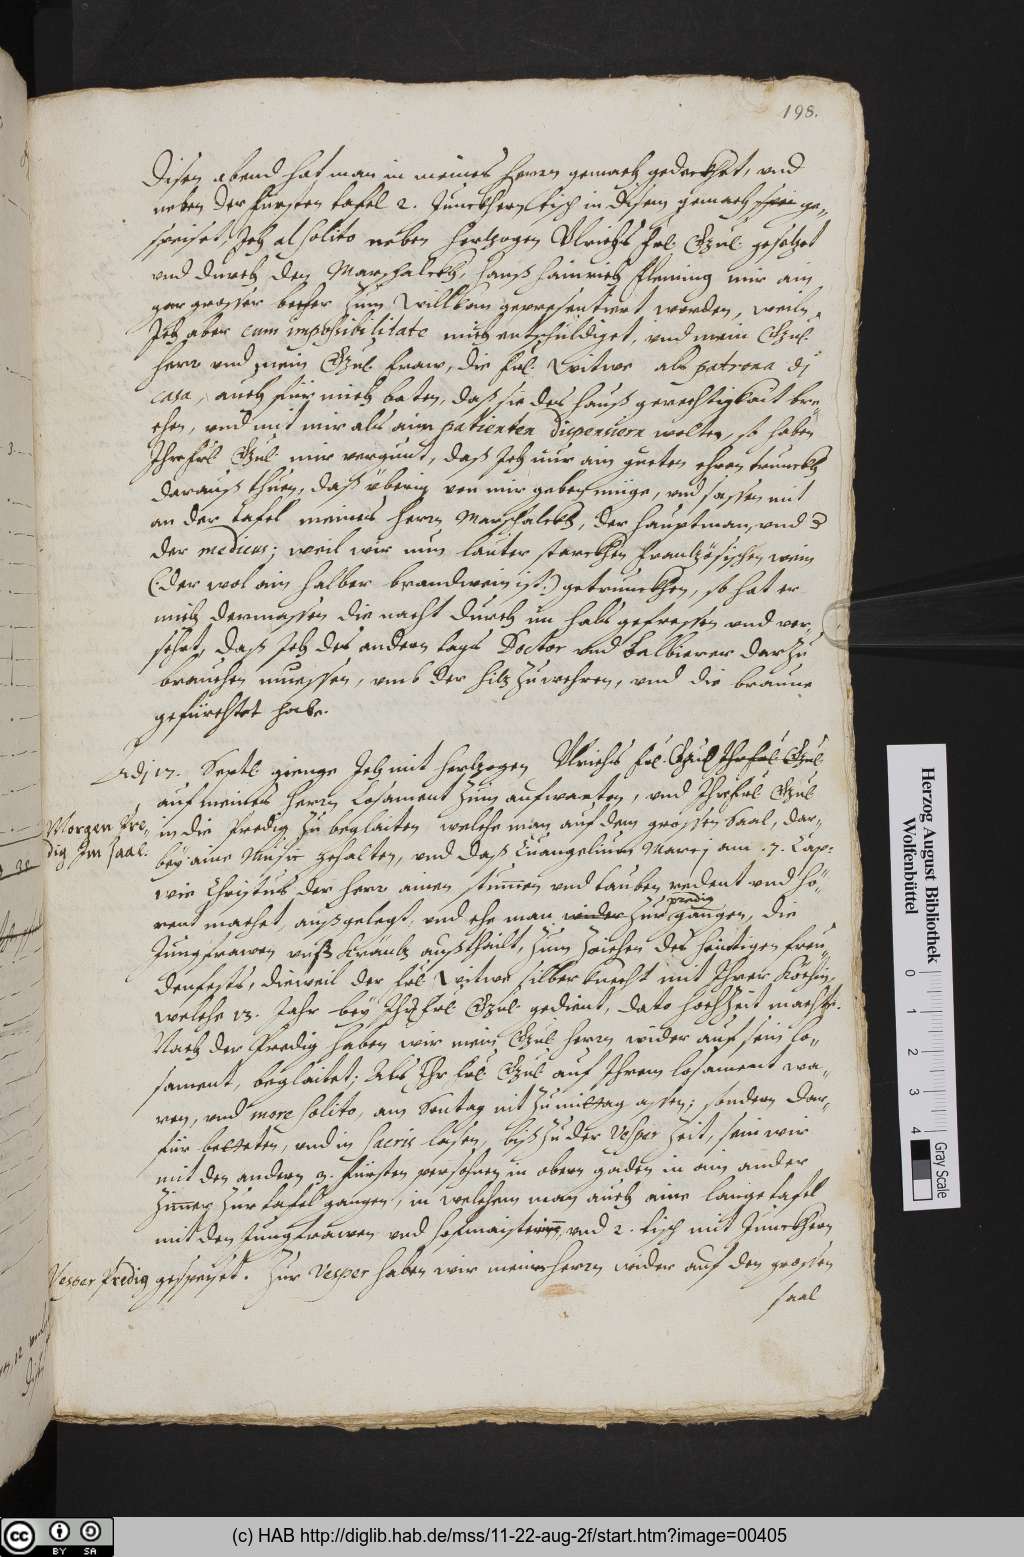 198.
Disen abend hat man in meines herrn gemach gedeckhet, und
neben der fürsten tafel 2. Junckhern tisch in disem gemach ge-
speiset, Ich al solito neben hertzogen Ulrichs frl: Gnd: gesetzet
und durch den Marschalckh, Hanß Hainrich Fleming mir ain
gar grosser becher zum willkom gepresentiert worden, weiln
Ich aber cum impossibilitate mich entschuldiget, und mein Gnd:
herr und mein Gnd: fraw, die frl: Witwe als patrona di
casa, auch für mich baten, daß sie des hauß gerechtigkait bre-
chen, und mit mir als aim patienten dispensiern wolten, so haben
Ihre frl: Gnd: mir vergunt, daß Ich nur ain gueten ehren trunckh
darauß thuen, daß überig von mir geben müge, und sassen mit
an der tafel meines herrn Marschalckh, der hauptman, und
der medicus; weil wir nun lauter starckhen frantzösischen wein
(:der wol ain halber brandwein ist:) getrunckhen, so hat er
mich dermassen die nacht durch im hals gefressen und ver-
sehrt, daß Ich des andern tags Doctor und balbierer darzu
brauchen muessen, umb der hitz zu wehren, und die breune
gefürchtet habe.
Adj 17. Septb: gienge Ich mit hertzogen Ulrichs frl: Gnd: Ihr frl: Gnd:
auf meines herrn losament zum aufwarten, und Ihre frl: Gnd:
Morgen Pre-
dig Im saal.
in die Predig zu beglaiten welche man auf dem grossen Saal, dar-
bey aine Music gehalten, und daß Euangelium Marci am .7. Cap:
wie Christus der herr ainen stummen und tauben redent und hö-
rent machet, außgelegt, und ehe man wider zur predig gangen, die
Jungfrawen auß kräntz außthailt, zum zeichen des heutigen freu-
denfests, dieweil der frl: Witwe silber knecht mit Ihrer Köchin,
welche 13. Jahr bey Ihr frl: Gnd: gedient, dato hochzeit machte.
Nach der Predig haben wir mein Gnd: herrn wider auf sein lo-
sament, beglaitet; Als Ihr frl: Gnd: auf Ihrem losament wa-
ren, und more solito, am Sontag nit zu mittag assen; sondern dar-
für betteten, und in sacris lasen, biß zu der Vesper Zeit, sein wir
mit den andern 3. fürsten personen in obern gaden in ain ander
Zimmer zur tafel gangen, in welchem man auch aine lange tafel
mit den Jungfrawen und hofmaisterin, und 2. tisch mit Junckhern
Vesper Predig
gespeyset. Zur Vesper haben wir mein herrn wider auf den grossen
saal
Herzog August Bibliothek
Wolfenbüttel
0 1 2 3 4
Gray Scale
cc BY SA
(c) HAB http://diglib.hab.de/mss/11-22-aug-2f/start.htm?image=00405